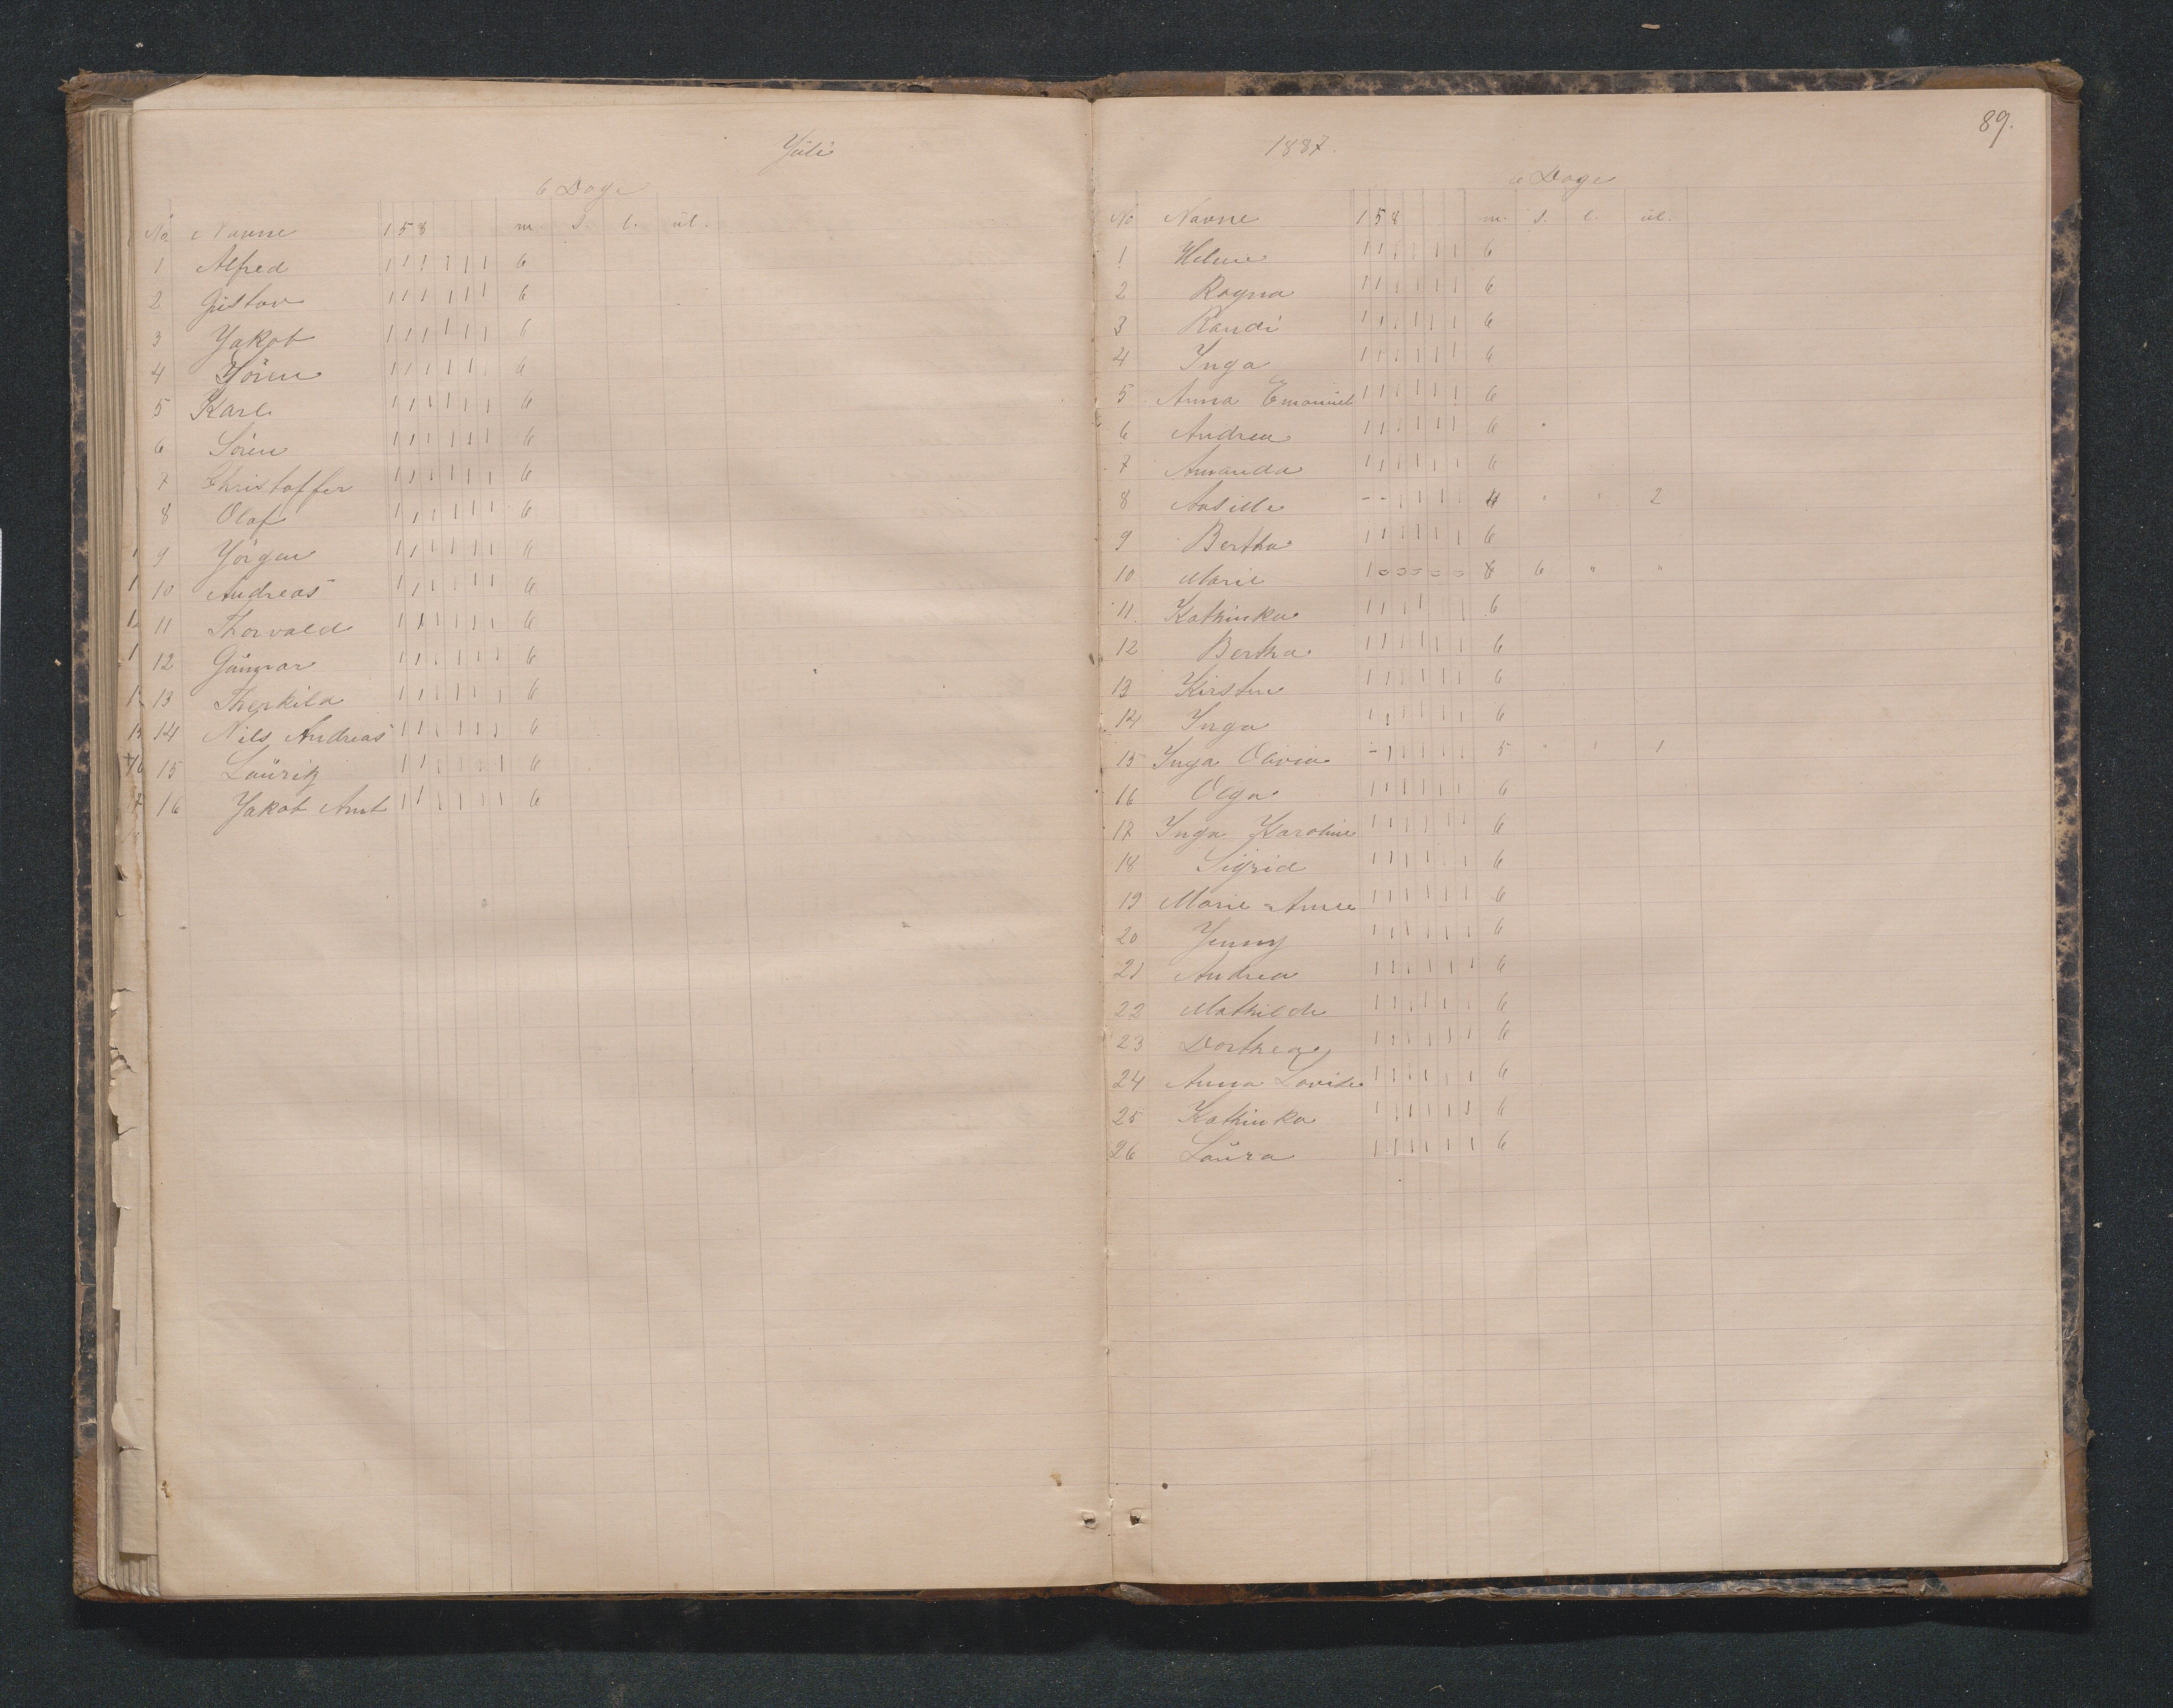 Yuli
6 Dage
No Navne 1 5 8 m. s. l. ul.
1 Alfred 1 1 1 1 1 1 6
2 Gustav 1 1 1 1 1 1 6
3 Yakob 1 1 1 1 1 1 6
4 Sören 1 1 1 1 1 1 6
5 Karl 1 1 1 1 1 1 6
6 Sören 1 1 1 1 1 1 6
7 Christoffer 1 1 1 1 1 1 6
8 Olaf 1 1 1 1 1 1 6
9 Yörgen 1 1 1 1 1 1 6
10 Andreas 1 1 1 1 1 1 6
11 Thorvald 1 1 1 1 1 1 6
12 Gunnar 1 1 1 1 1 1 6
13 Therkild 1 1 1 1 1 1 6
14 Nils Andreas 1 1 1 1 1 1 6
15 Lauritz 1 1 1 1 1 1 6
16 Yakob Amt 1 1 1 1 1 1 6
89.
1887.
6 Dage
No Navne 1 5 8 m. s. l. ul.
1 Helene 1 1 1 1 1 1 6
2 Ragna 1 1 1 1 1 1 6
3 Randi 1 1 1 1 1 1 6
4 Ynga 1 1 1 1 1 1 6
5 Anna Emanuel 1 1 1 1 1 1 6
6 Andrea 1 1 1 1 1 1 6
7 Amanda 1 1 1 1 1 1 6
8 - - 1 1 1 1 4 " " 2
9 Bertha 1 1 1 1 1 1 6
10 Marie 6 " "
11. Kathinka 1 1 1 1 1 1 6
12 Bertha 1 1 1 1 1 1 6
13 Kirsten 1 1 1 1 1 1 6
14 Ynga 1 1 1 1 1 1 6
15 Ynga Olivia - 1 1 1 1 1 5 " " 1
16 Olga 1 1 1 1 1 1 6
17 Ynga Karoline 1 1 1 1 1 1 6
18 Sigrid 1 1 1 1 1 1 6
19 Marie = Anne 1 1 1 1 1 1 6
20 Yenny 1 1 1 1 1 1 6
21 Andrea 1 1 1 1 1 1 6
22 Mathilde 1 1 1 1 1 1 6
23 Dorthea 1 1 1 1 1 1 6
24 Anna Lovise 1 1 1 1 1 1 6
25 Kathinka 1 1 1 1 1 1 6
26 Laura 1 1 1 1 1 1 6